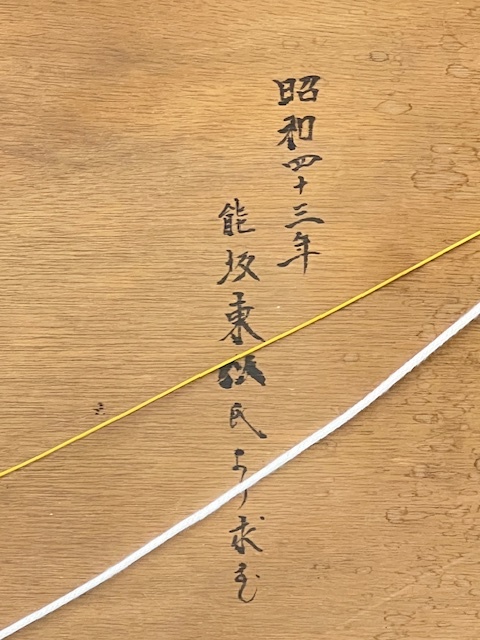 昭和四十三年
能坂東 氏より求む